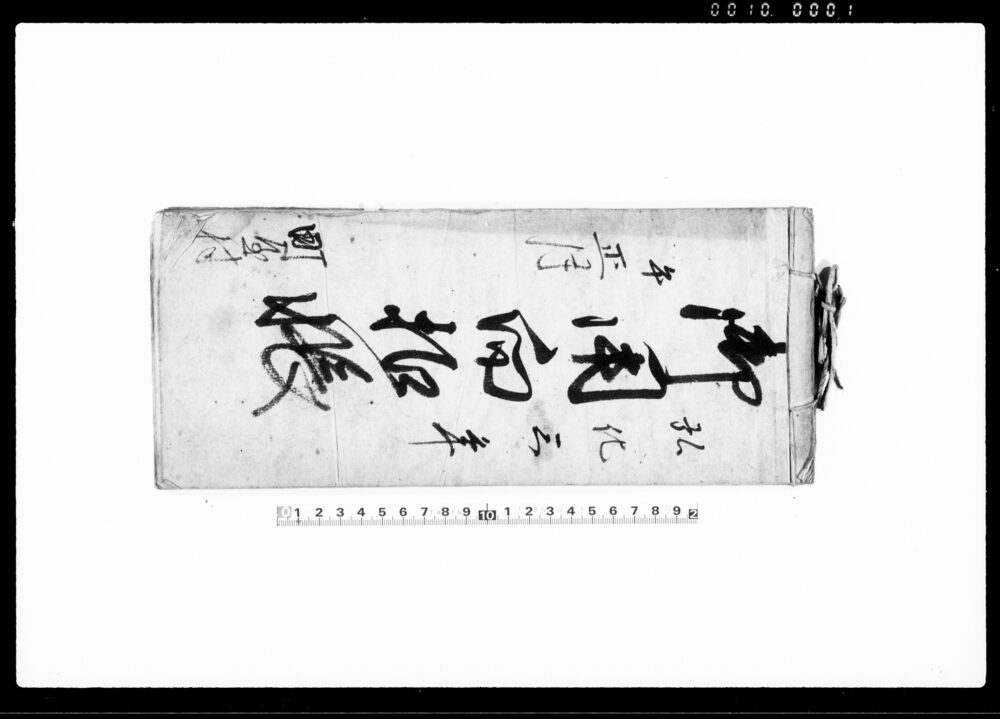 弘化三年
御用向控帳
午 正月
0010 0001
0 1 2 3 4 5 6 7 8 9 10 1 2 3 4 5 6 7 8 9 2